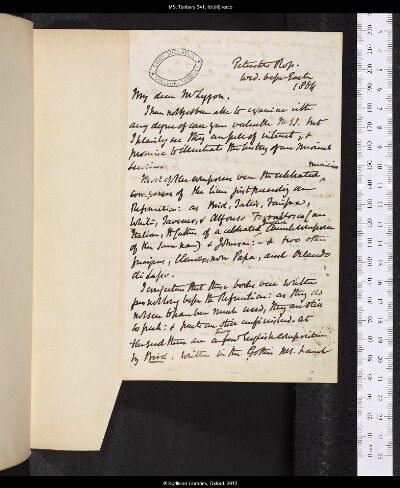 MS. Tenbury 341, fol.(iii) recto
Wed. before Easter
1884
My dear Mr Lygon.
I have not yet been able to examine with
any degree of care your valuable MSS. but
I plainly see they are full of interest, &
promise to illustrate the history of our Musical
Service.
musicians
Most of the composers were the celebrated
of the time just preceding our
Reformation: as Bird, Tallis, Fairfax,
White, Taverner, & Alfonso Ferrabosco (an
Italian, & father of a celebrated Church composer
of the same name) & Johnson: & two other
foreigners, Clemens, non Papa, and Orlando
di Lasso.
I conjecture that these books were written
not long before the Reformation: as they do
not seem to have been much used, they are still
so fresh: & parts are still unfinished. At
the end there are a few English compositions
by Bird, written in the Gothic MS. hand
© Bodleian Libraries, Oxford, 2012